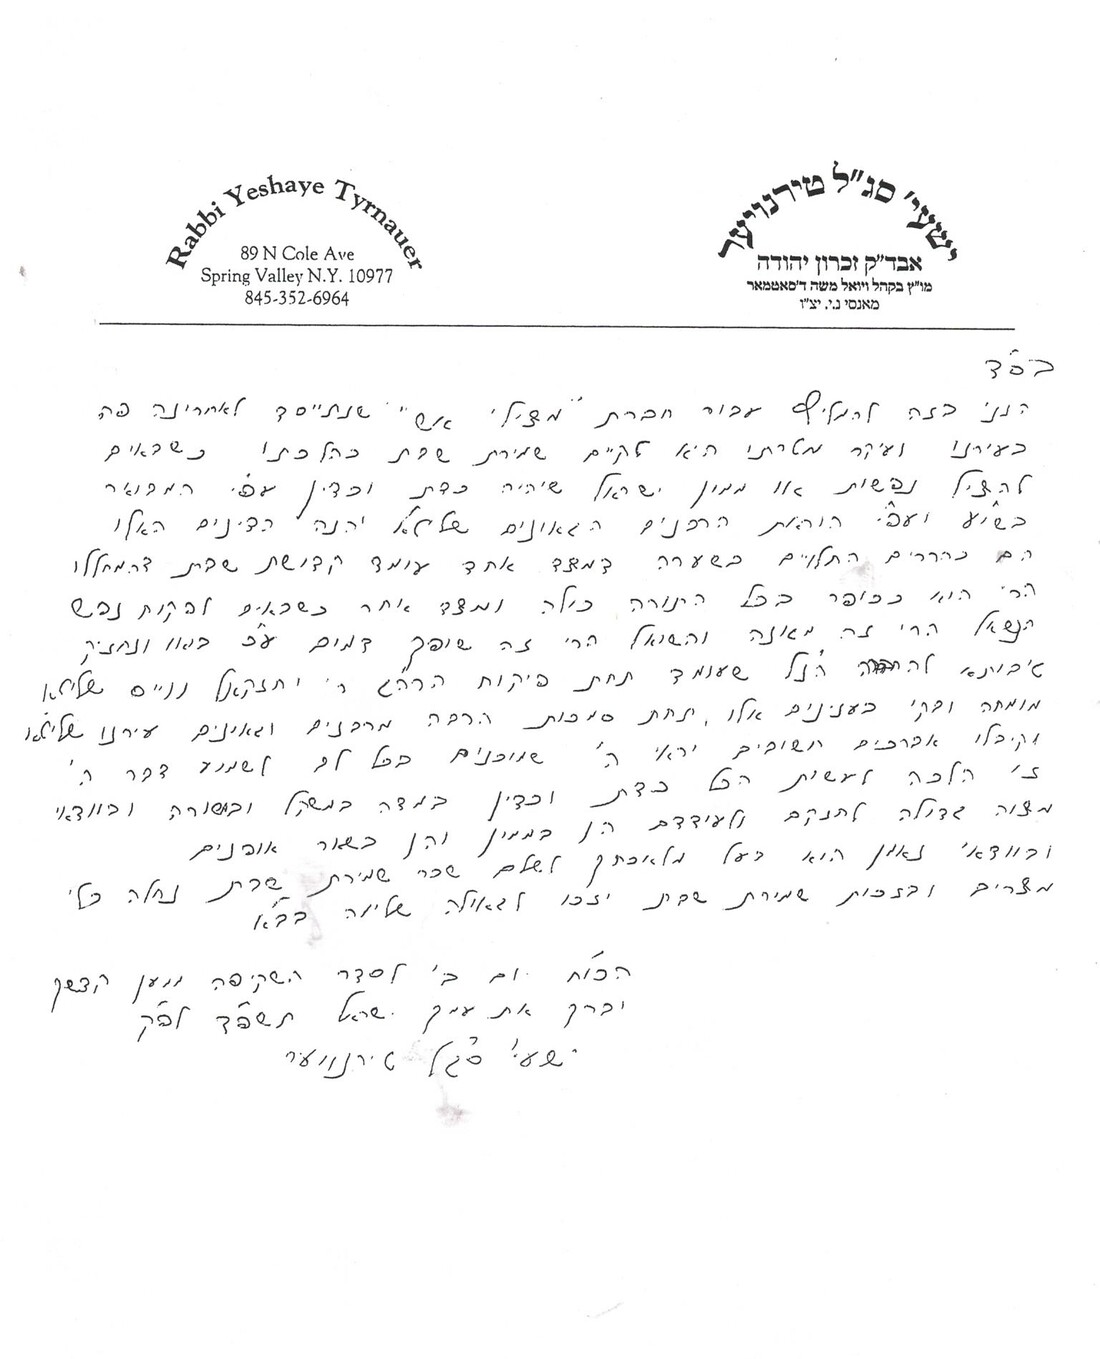 Rabbi Yeshaye Tyrnauer
89 N Cole Ave
Spring Valley N.Y. 10977
845-352-6964
ישעי' סג"ל טירנויער
אבד"ק זכרון יהודה
מו"ץ בקהל ויואל משה ד'סאטמאר
מאנסי נ.י. יצ"ו
בס"ד
הנני בזה להמליץ עבור חברת "מצילי אש" שנתייסד לאחרינה פה
בעירנו ועיקר מטרתו היא לקיים שמירת שבת כהלכתו כשבאים
להציל נפשות או ממון ישראל שיהיה כדת וכדין עפ"י המבואר
בשו"ע ועפ"י הוראת הרבנים הגאונים שליט"א יהנה הדינים האלו
הם כהררים התלוים בשערה דמצד אחד עומד קדושת שבת דהמחללו
הרי הוא ככופר בכל התורה כולה ומצד אחר כשבאים לפקוח נפש
הנשאל הרי זה מגונה והשואל הרי זה שופך דמים ע"כ באו ונחזיק
טיבותא הנ"ל שעומד תחת פיקוח הרה"ג ר' יחזקאל ווייס שליט"א
מומחה ובקי בענינים אלו, תחת סמכות הרבה מרבנים וגאונים עירנו שליט"א
וקיבלו אברכים חשובים יראי ה' שמוכנים בכל לב לשמוע דבר ה'
זו הלכה לעשות הכל כדת וכדין במדה במשקל ובמשורה ובוודאי
מצוה גדולה לחזקם ולעודדם הן בממון והן בשאר אופנים
ובוודאי נאמן הוא בעל מלאכתך לשלם שכר שמירת שבת נחלה בלי
מצרים ובזכות שמירת שבת יזכו לגאולה שלימה בב"א
הכו"ח יום ב' לסדר השקיפה ממעון קדשך
וברך את עמך ישראל תשפ"ד לפ"ק
ישעי' סג"ל טירנויער